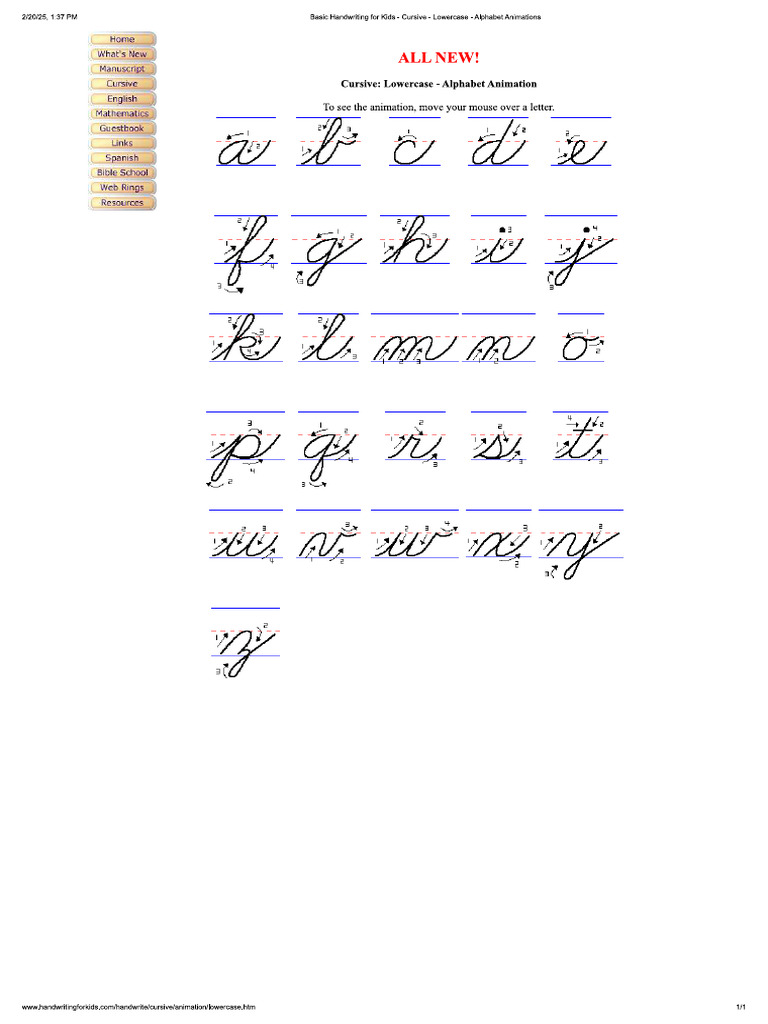 2/20/25, 1:37 PM
Basic Handwriting for Kids - Cursive - Lowercase - Alphabet Animations
Home
What's New
Manuscript
Cursive
English
Mathematics
Guestbook
Links
Spanish
Bible School
Web Rings
Resources
ALL NEW!
Cursive: Lowercase - Alphabet Animation
To see the animation, move your mouse over a letter.
a b c d e
f g h i j
k l m n o
p q r s t
u v w x y
z
www.handwritingforkids.com/handwrite/cursive/animation/lowercase.htm
1/1